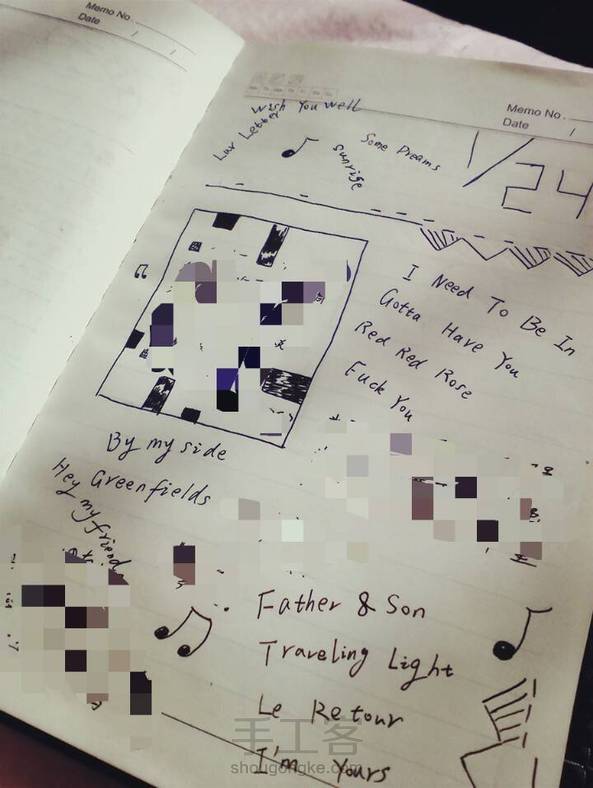 Memo No.
Date / /
Memo No.
Date /
Wish You Well
Luv Letter
Some Dreams
sunrise
1/24
I Need To Be In
Gotta Have You
Red Red Rose
Fuck You
By my side
Hey Greenfields
my friend
Father & Son
Traveling Light
Le Retour
I'm Yours
手工客
shougongke.com